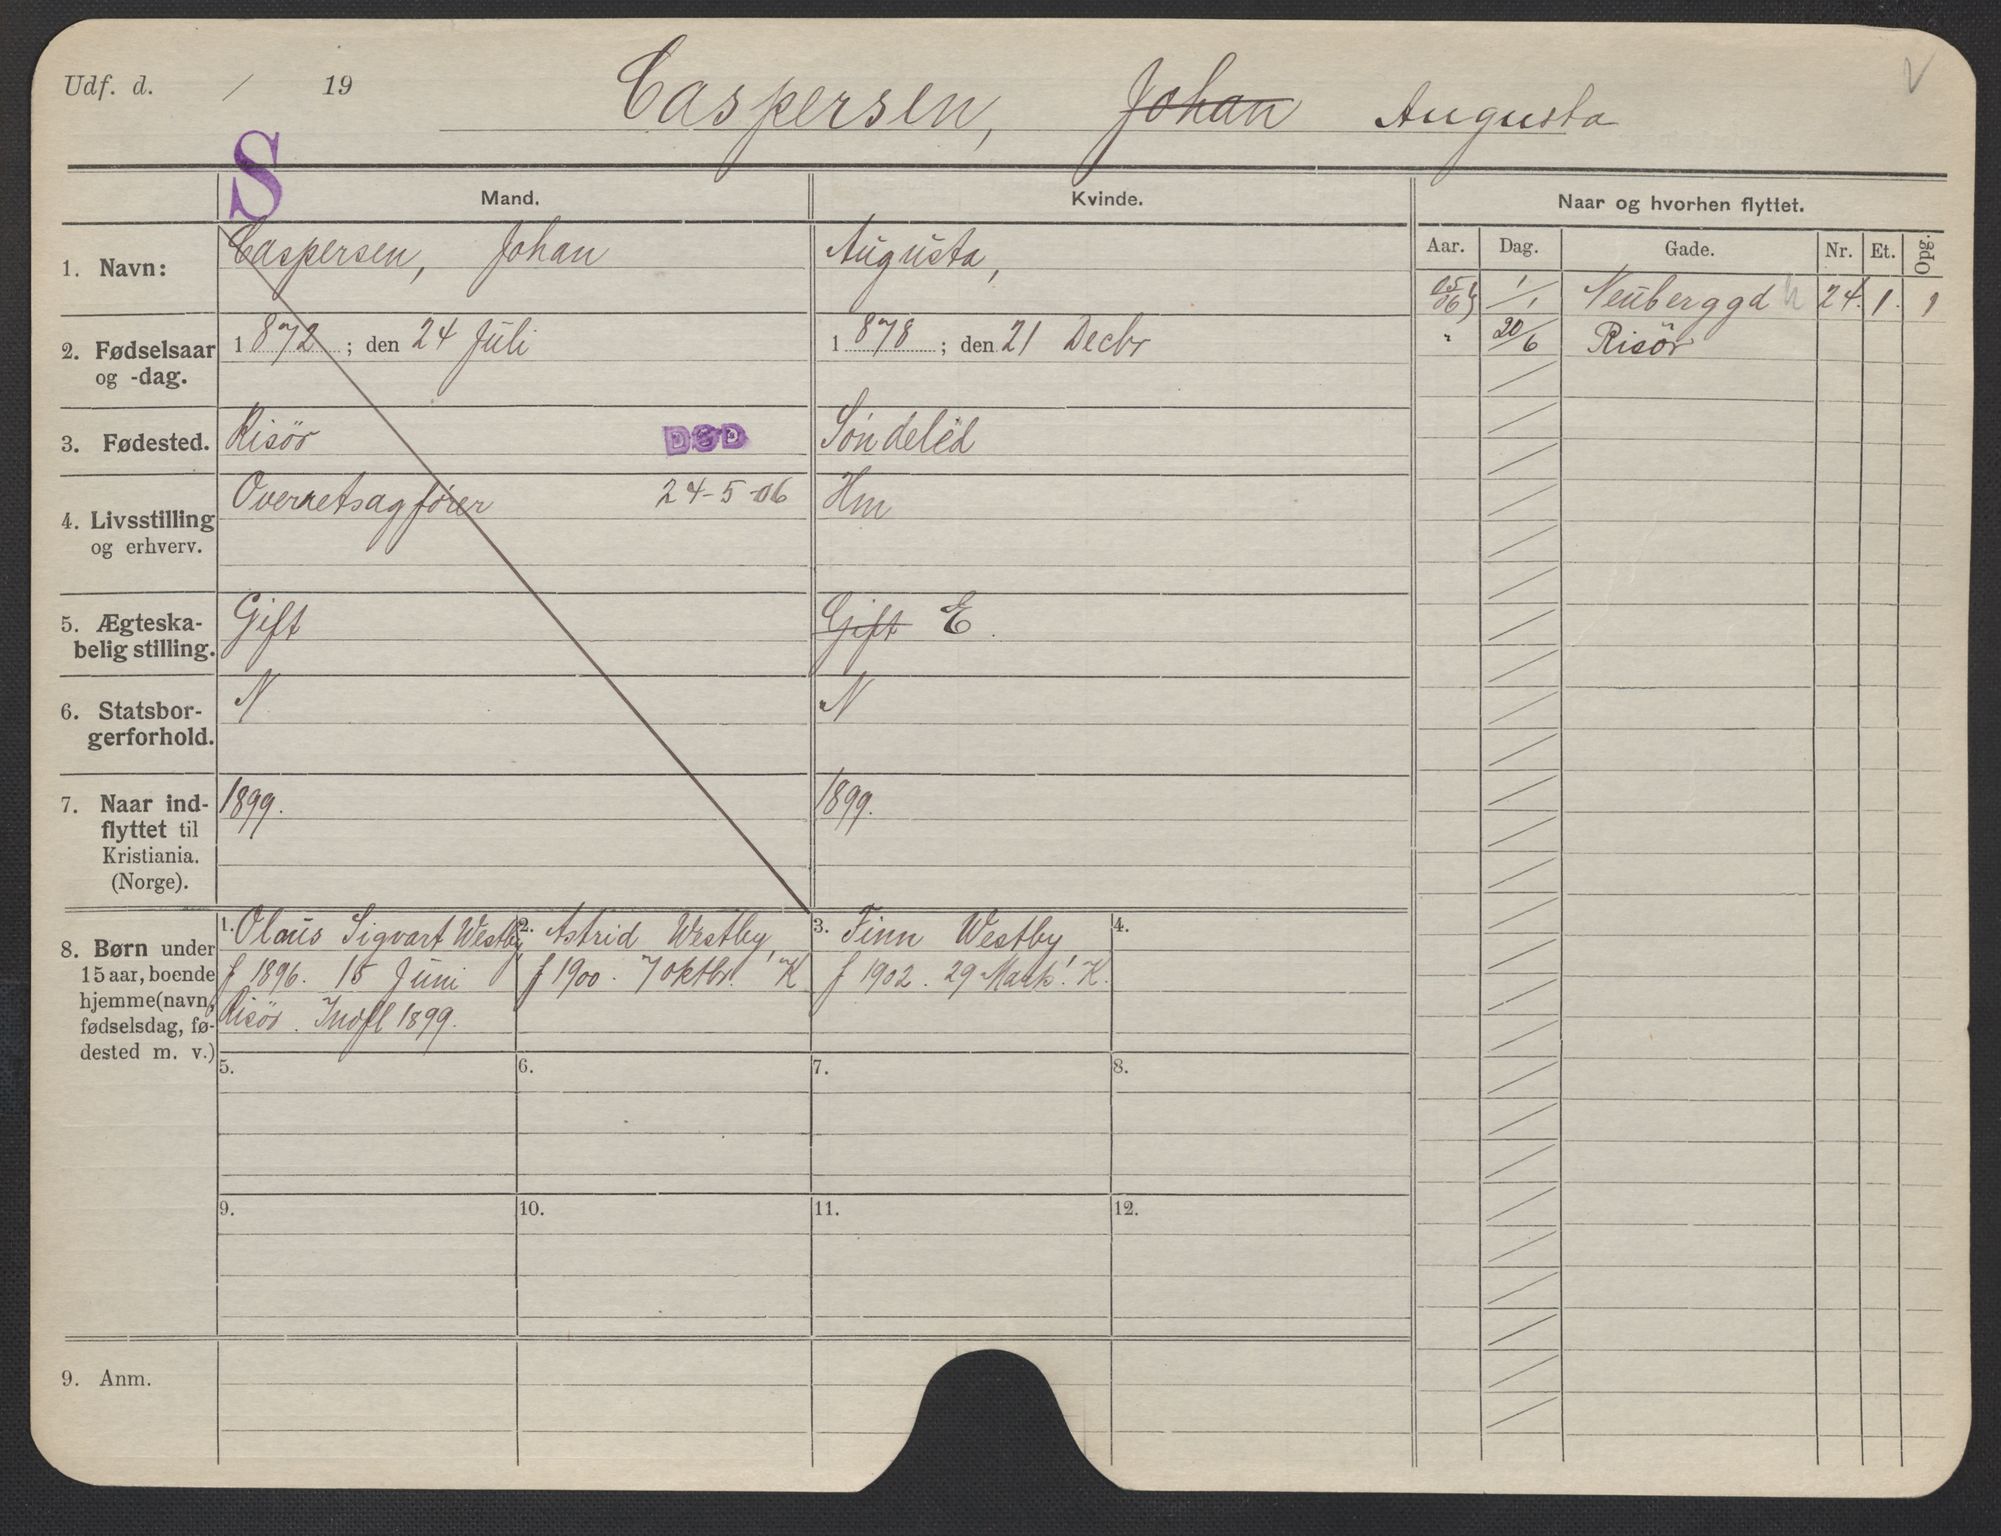 Udf. d. / 19
Caspersen, Johan Augusta
V
S
Mand.
Kvinde.
Naar og hvorhen flyttet.
Aar. Dag. Gade. Nr. Et. Opg.
1. Navn:
Caspersen, Johan
Augusta,
05/06 1/1 Neuberggd 24. 1. 1
" 20/6 Risör
2. Fødselsaar og -dag.
1872; den 24 Juli
1878; den 21 Decbr
3. Fødested.
Risör
DØD
Söndeled
4. Livsstilling og erhverv.
Overretsagfører 24-5-06
Hm
5. Ægteska-
belig stilling.
Gift
Gift E.
6. Statsbor-
gerforhold.
N
N
7. Naar ind-
flyttet til
Kristiania.
(Norge).
1899.
1899.
8. Børn under
15 aar, boende
hjemme (navn,
fødselsdag, fø-
dested m. v.)
1. Olaus Sigvart Westby
f 1896. 15 Juni
Risör. Indfl 1899.
2. Astrid Westby,
f 1900. 7 oktbr. K
3. Finn Westby
f 1902. 29 Marts. K.
4.
5.
6.
7.
8.
9.
10.
11.
12.
9. Anm.